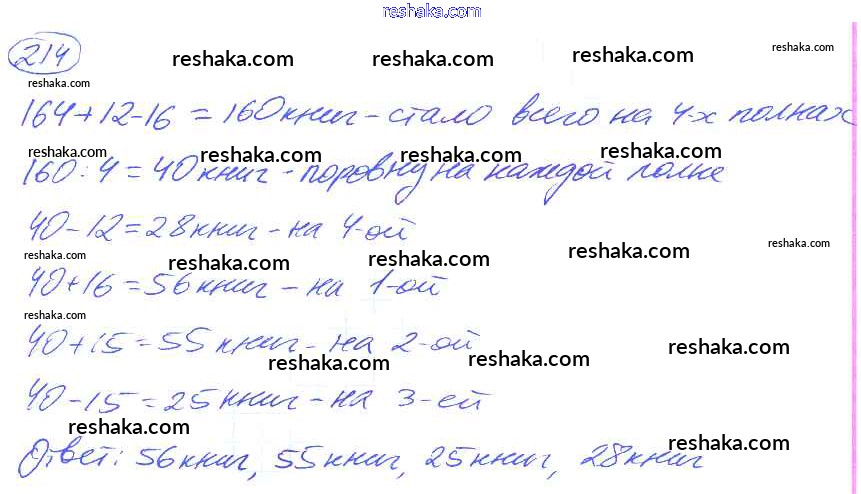 reshaka.com
214 reshaka.com reshaka.com reshaka.com reshaka.com
reshaka.com
164+12-16=160книг-стало всего на 4-х полках
reshaka.com reshaka.com reshaka.com reshaka.com
160:4=40книг-поровну на каждой полке
40-12=28книг-на 4-ой
reshaka.com reshaka.com reshaka.com reshaka.com reshaka.com
40+16=56книг-на 1-ой
reshaka.com
40+15=55книг-на 2-ой
reshaka.com reshaka.com reshaka.com
40-15=25книг-на 3-ей
reshaka.com reshaka.com
Ответ: 56книг, 55книг, 25книг, 28книг